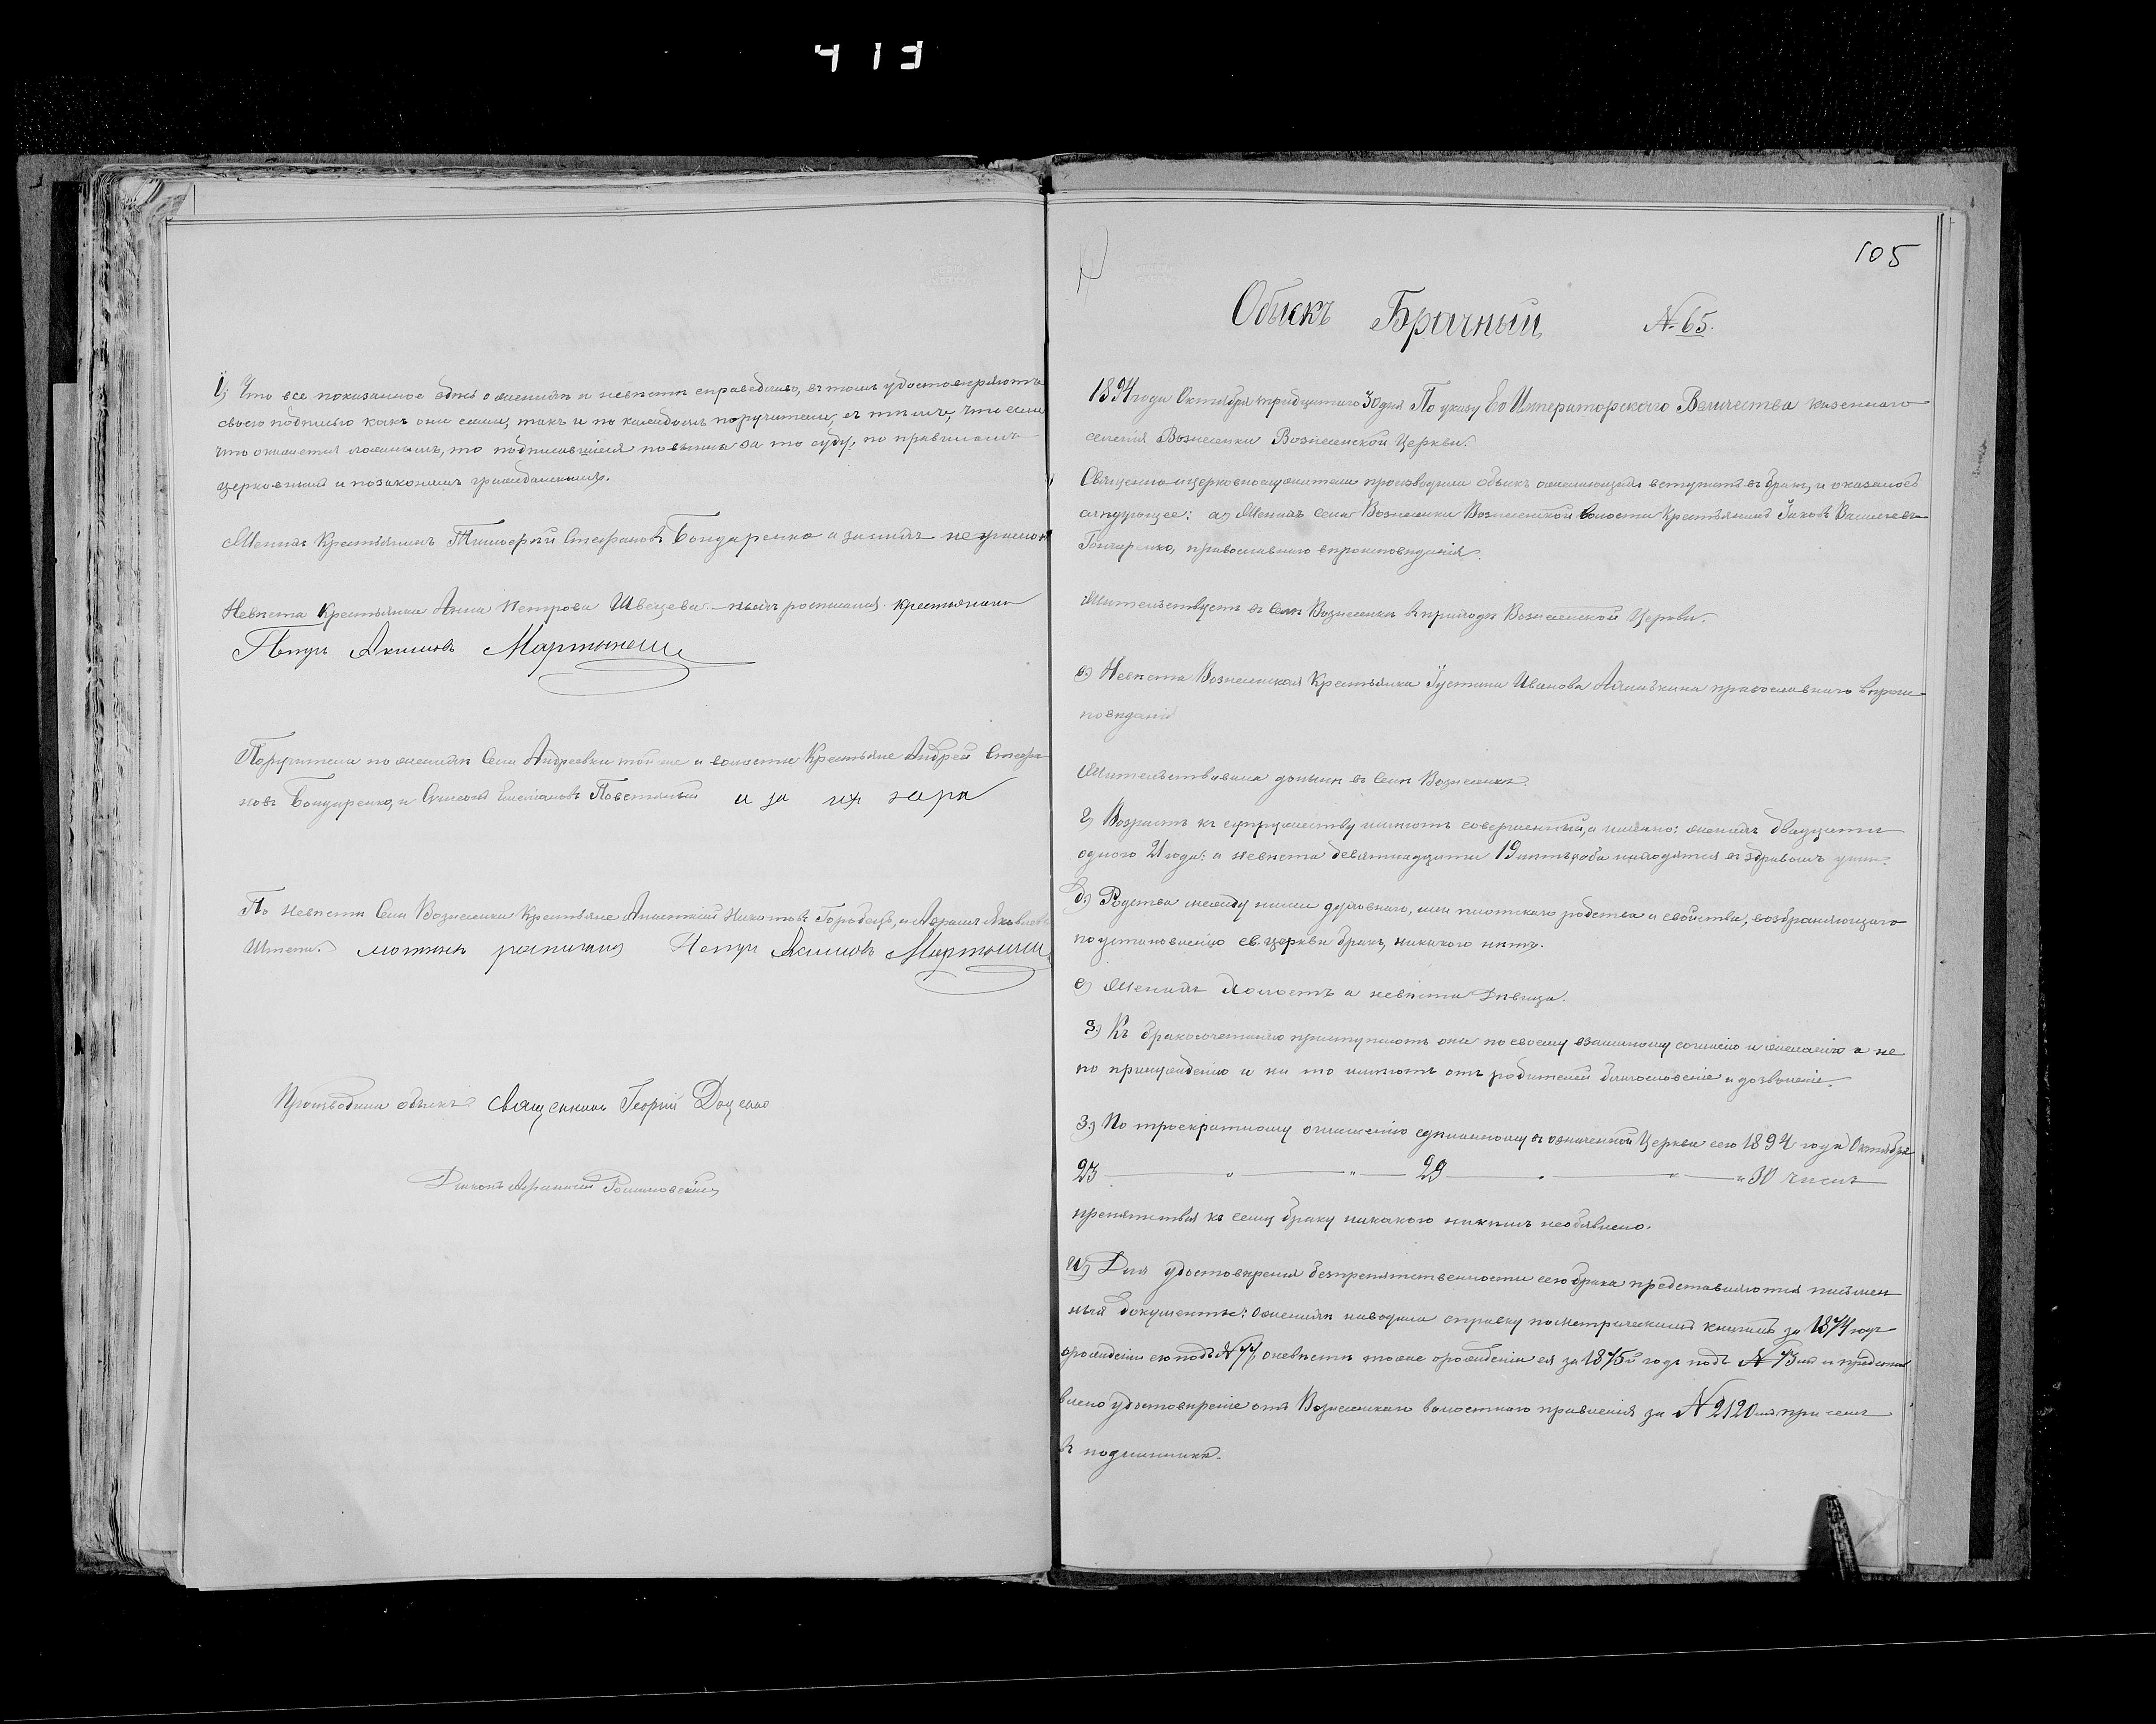 413
I) Что все показанное здѣсь о женихѣ и невѣстѣ справедливо, въ томъ удостовѣряютъ
своею подписью какъ они сами, такъ и по каждомъ поручители, съ тѣмъ, что если
что окажется ложнымъ, то подписавшіеся повинны за то суду, по правиламъ
церковнымъ и по законамъ гражданскимъ.
Женихъ Крестьянинъ Тимофей Стефановъ Бондаренко а за нихъ неграмот
Невѣста Крестьянка Анна Петрова Швецева крестьянинъ
Петръ Акимовъ Мартынеш
Поручители по женихѣ Села Андреевки той же и волости Крестьяне Андрей Стефа
новъ Бондаренко, и а за их
По невѣстѣ Села Вознесенки Крестьяне Никитовъ Городецъ, и Яковлевъ
Штепа. Петръ Акимовъ Мартынеш
Производили обыскъ Священникъ Георгій Доценко
Діаконъ Романовскій
105
Обыскъ Брачный № 65.
1894 года Октября тридцатого 30 дня По указу Его Императорскаго Величества казеннаго
селенія Вознесенки Вознесенской Церкви.
Священно-церковнослужители производили обыскъ о желающихъ вступить въ бракъ, и оказалось
слѣдующее: а) Женихъ Села Вознесенки Вознесенской волости Крестьянинъ Іаковъ Васильевъ
Гончаренко, православнаго вѣроисповѣданія.
Жительствуетъ въ Селѣ Вознесенкѣ въ приходѣ Вознесенской Церкви.
в) Невѣста Вознесенская Крестьянка Іустина Иванова православнаго вѣроис
повѣданія
Жительствовала донынѣ въ Селѣ Вознесенкѣ.
г) Возрастъ къ супружеству имѣютъ совершенный, а именно: женихъ двадцати
одного 21 года: а невѣста девятнадцати 19 лѣтъ, оба находятся въ здравомъ умѣ.
д) Родства между ними духовнаго, или плотскаго родства и свойства, возбраняющаго
по установленію св. церкви бракъ, никакого нѣтъ.
е) Женихъ Холостъ а невѣста Дѣвица.
ѕ) Къ бракосочетанію приступаютъ они по своему взаимному согласію и желанію а не
по принужденію и на то имѣютъ отъ родителей благословеніе и дозволеніе.
з) По троекратному оглашенію сдѣланному въ означенной Церкви сего 1894 года Октября
23 " " 29 " " " 30 числъ
препятствія къ сему браку никакого никѣмъ необъявлено.
и) Для удостовѣренія безпрепятственности сего брака представляются письмен
ныя документы: О женихѣ наводили справку по метрическимъ книгамъ за 1874 годъ
о рожденіи его подъ № 77, о невѣстѣ тоже о рожденіи ея за 1875й годъ подъ № 73 мъ и предста
влено удостовѣреніе отъ Вознесенскаго волостного правленія за № 2120 мъ при семъ
въ подлинникѣ.